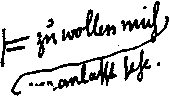 zu wollen mich
... anlasst sehe.